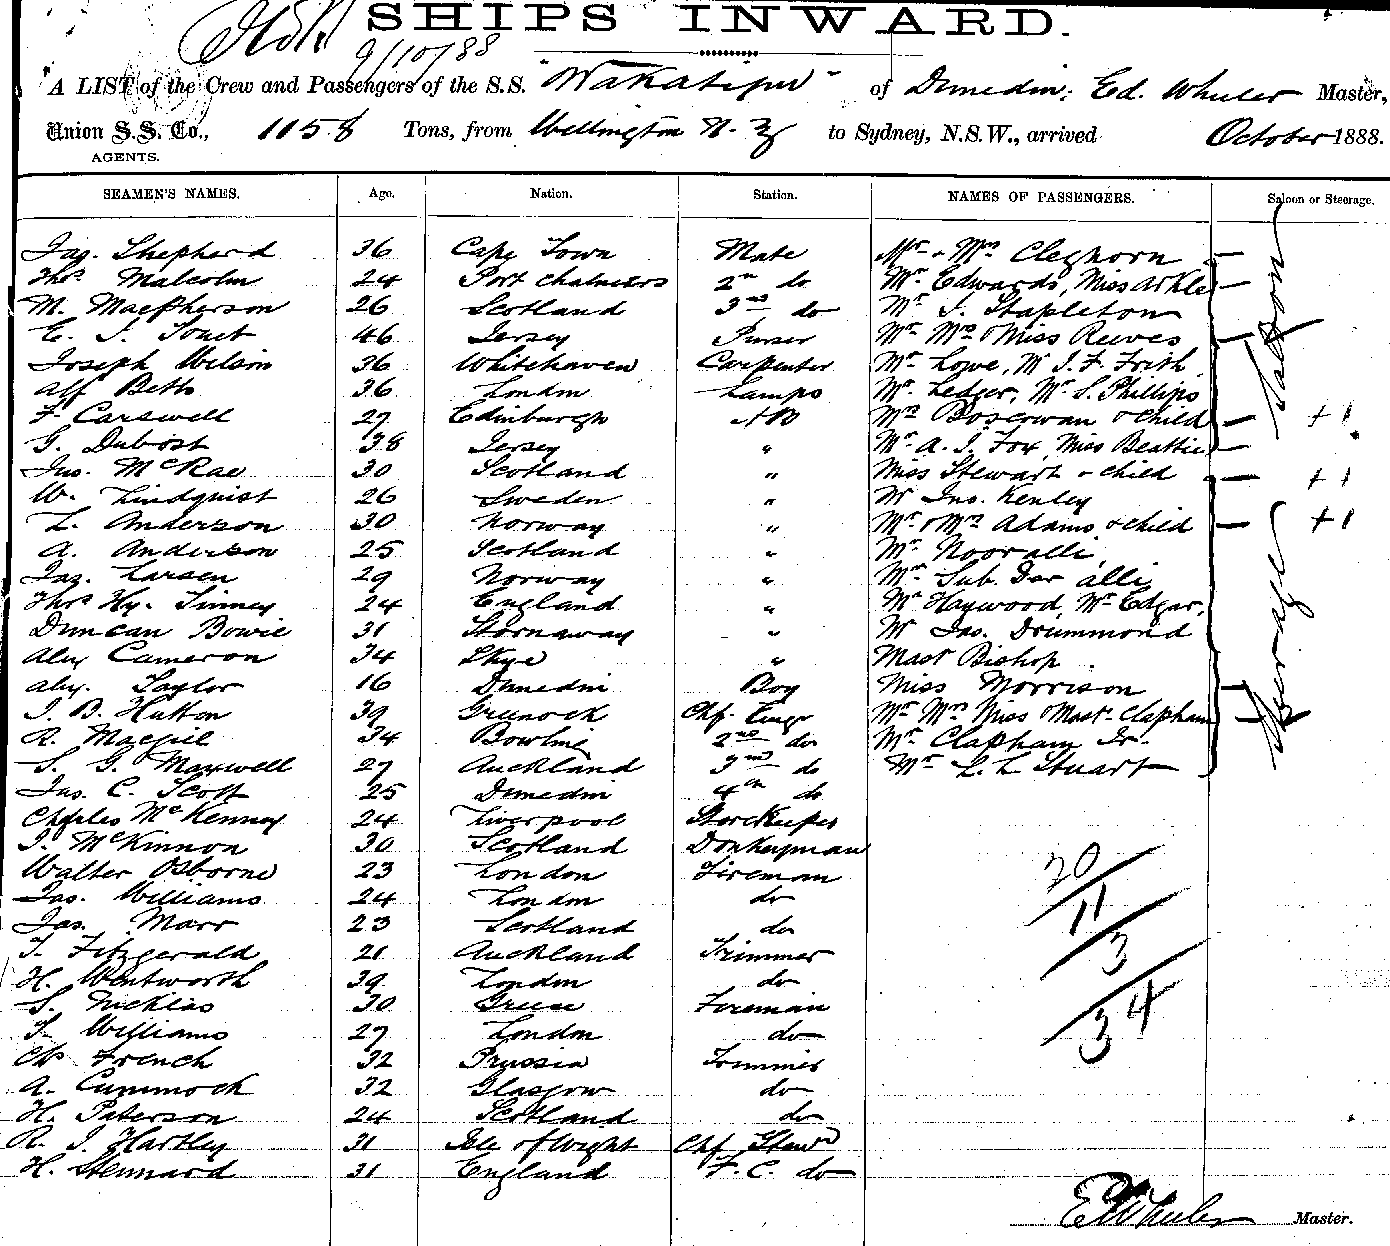 SHIPS INWARD.
9/10/88
A LIST of the Crew and Passengers of the S.S. "Wakatipu" of Dunedin, Ed. Wheeler Master,
Union S.S. Co., 1158 Tons, from Wellington N.Z to Sydney, N.S.W., arrived October 1888.
AGENTS.
SEAMEN'S NAMES. Age. Nation. Station. NAMES OF PASSENGERS. Saloon or Steerage.
Jas. Shepherd 36 Cape Town Mate Mr & Mrs Cleghorn
Thos. Malcolm 24 Port Chalmers 2nd do Mr Edwards, Miss Arkle
M. Macpherson 26 Scotland 3rd do Mr J. Stapleton
E. J. 46 Jersey Purser Mr Mrs & Miss Reeves
Joseph Wilson 36 Whitehaven Carpenter Mr Lowe, Mr J. F. Frith
Alf Betts 36 London Lamps Mr Ledger, Mr S. Phillips
F. Carswell 27 Edinburgh AB Mrs & child + 1
G. Dubost 38 Jersey " Mr A. J. Fox, Miss Beattie
Jno. McRae 30 Scotland " Miss Stewart & child + 1
W. Lindquist 26 Sweden " Mr Jno. Kenley
L. Anderson 30 Norway " Mr & Mrs Adams & child + 1
A. Anderson 25 Scotland " Mr Nooralli
Jas. Larsen 29 Norway " Mr Sub. Dar alli
Thos Hy. Tinney 24 England " Mr Haywood, Mr Edgar,
Duncan Bowie 31 Stornaway " Mr Jas. Drummond
Alex Cameron 34 Skye " Mast Bishop
Alex. Taylor 16 Dunedin Boy Miss Morrison
J. B. Hutton 39 Greenock Chf. Engr Mr Mrs Miss & Mast. Clapham
R. Macgill 34 Bowling 2nd do Mr Clapham Jr.
S. G. Maxwell 27 Auckland 3rd do Mr L. L Stuart
Jas. C. Scott 25 Dunedin 4th do
Charles McKenney 24 Liverpool Storekeeper
J. McKinnon 30 Scotland Donkeyman
Walter Osborne 23 London Fireman
Jas. Williams 24 London do
Jas. Marr 23 Scotland do
T. Fitzgerald 21 Auckland Trimmer
H. Wentworth 39 London do
S. Nicklas 30 Greece Foreman
T. Williams 27 London do
Ch French 32 Prussia Trimmer
A. Cummock 32 Glasgow do
H. Paterson 24 Scotland do
R. J. Hartley 31 Isle of Wight Chf Stewd
H. Stennard 31 England F. C. do
Saloon
Steerage
20
11
3
34
3
E Wheeler Master.